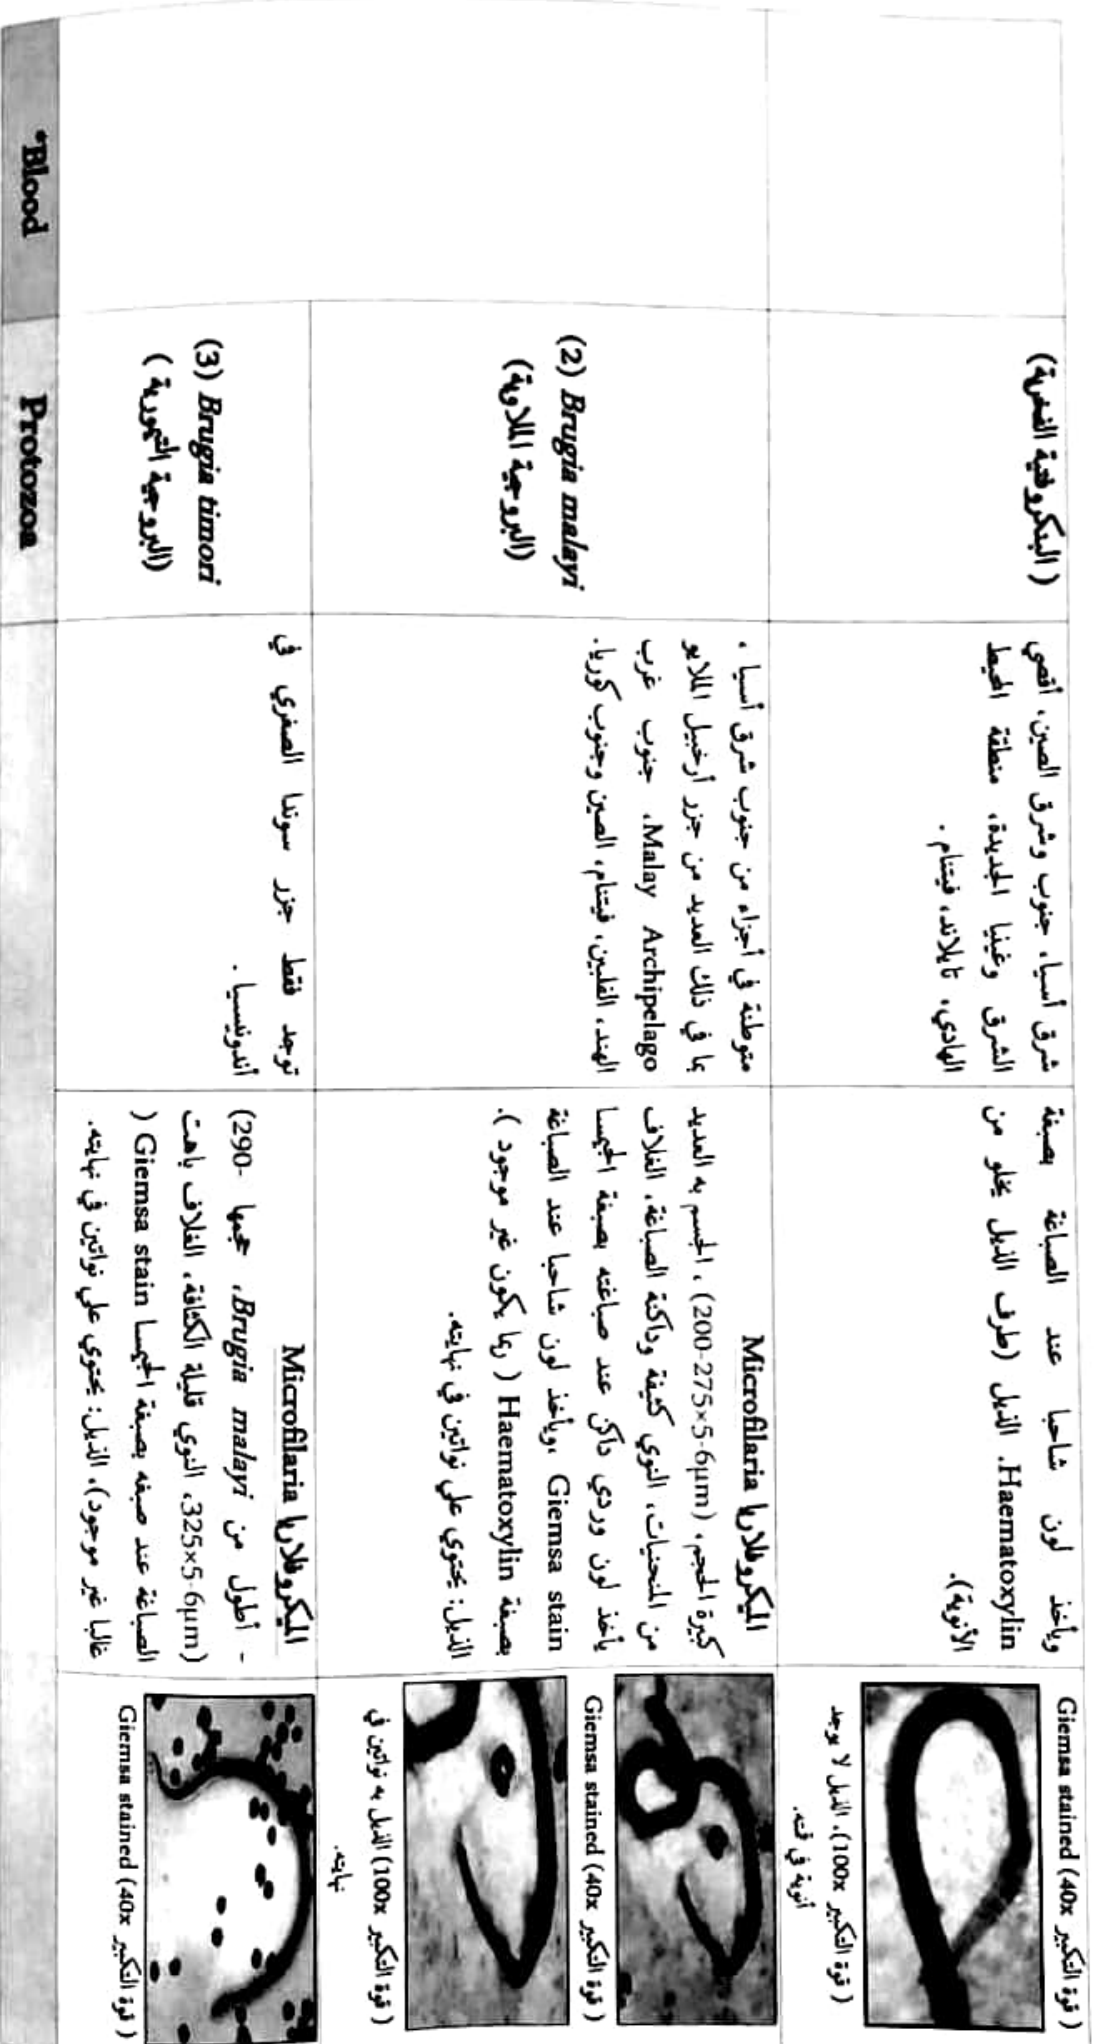 ( البنكروفتية الفخرية)
شرق أسيا، جنوب وشرق الصين، أقصي
الشرق وغينيا الجديدة، منطقة المحيط
الهادي، تايلاند، فيتنام .
ويأخذ لون شاحبا عند الصباغة بصبغة
Haematoxylin. الذيل (طرف الذيل يخلو من
الأنوية).
Giemsa stained (40x قوة التكبير )
( قوة التكبير 100x)، الذيل لا يوجد
أنوية في قمته.
(2) Brugia malayi
(البروجية الملاوية)
متوطنة في أجزاء من جنوب شرق أسيا ،
بما في ذلك العديد من جزر أرخبيل الملايو
Malay Archipelago، جنوب غرب
الهند، الفلبين، فيتنام، الصين وجنوب كوريا.
الميكروفلاريا Microfilaria
كبيرة الحجم، (200-275×5-6µm) ، الجسم به العديد
من المنحنيات، النوي كثيفة وداكنة الصباغة. الغلاف
يأخذ لون وردي داكن عند صباغته بصبغة الجيمسا
Giemsa stain ،ويأخذ لون شاحبا عند الصباغة
بصبغة Haematoxylin ( ربما يكون غير موجود ).
الذيل: يحتوي علي نواتين في نهايته.
Giemsa stained (40x قوة التكبير )
( قوة التكبير 100x) الذيل به نواتين في
نهايته.
(3) Brugia timori
(البروجية التيمورية )
توجد فقط جزر سوندا الصغري في
أندونيسيا .
الميكروفلاريا Microfilaria
- أطول من Brugia malayi، حجمها (290-
325×5-6µm)، النوي قليلة الكثافة. الغلاف باهت
الصباغة عند صبغه بصبغة الجيمسا Giemsa stain (
غالبا غير موجود)، الذيل: يحتوي علي نواتين في نهايته.
Giemsa stained (40x قوة التكبير )
*Blood
Protozoa